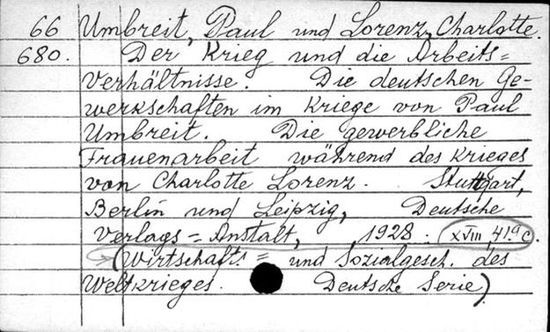 66 Umbreit, Paul und Lorenz, Charlotte.
680. Der Krieg und die Arbeits=
verhältnisse. Die deutschen Ge-
werkschaften im Kriege von Paul
Umbreit. Die gewerbliche
Frauenarbeit während des Krieges
von Charlotte Lorenz. Stuttgart,
Berlin und Leipzig, Deutsche
Verlags=Anstalt, 1928. XVIII, 41.9c.
(Wirtschafts= und Sozialgesch. des
Weltkrieges. Deutsche Serie)